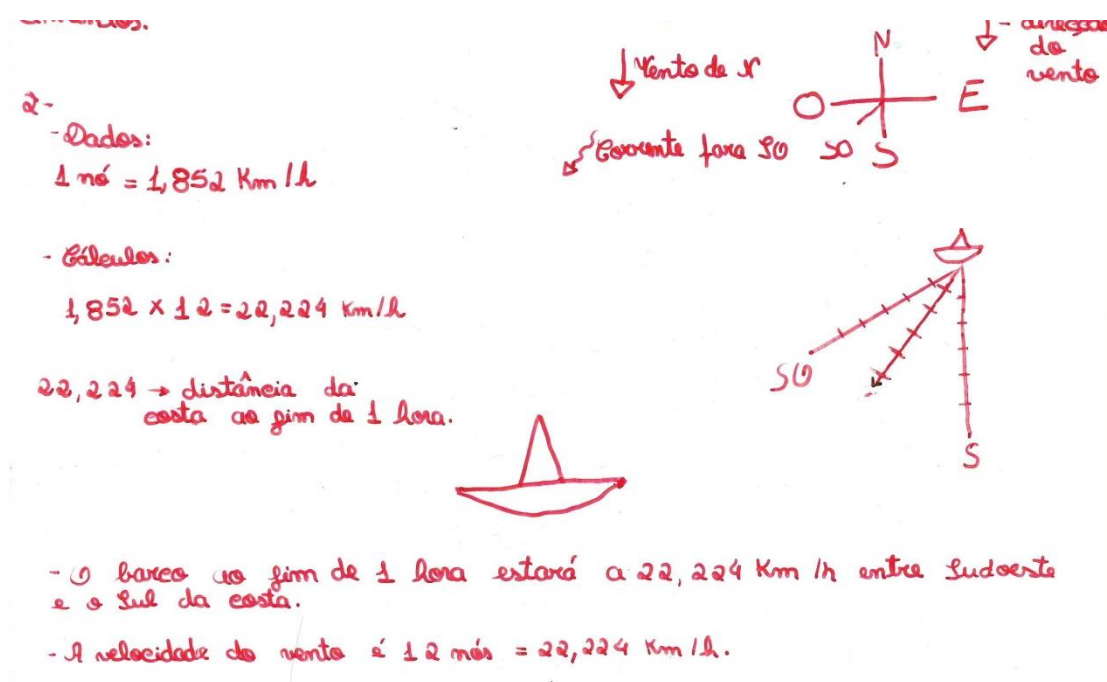 2-
- Dados:
1 nó = 1,852 Km/h
- Cálculos:
1,852 x 12 = 22,224 Km/h
22,224 → distância da
costa ao fim de 1 hora.
Vento de N
Corrente para SO
N
O
E
SO
S
do
vento
SO
S
- O barco ao fim de 1 hora estará a 22,224 Km/h entre Sudoeste
e o Sul da costa.
- A velocidade do vento é 12 nós = 22,224 Km/h.